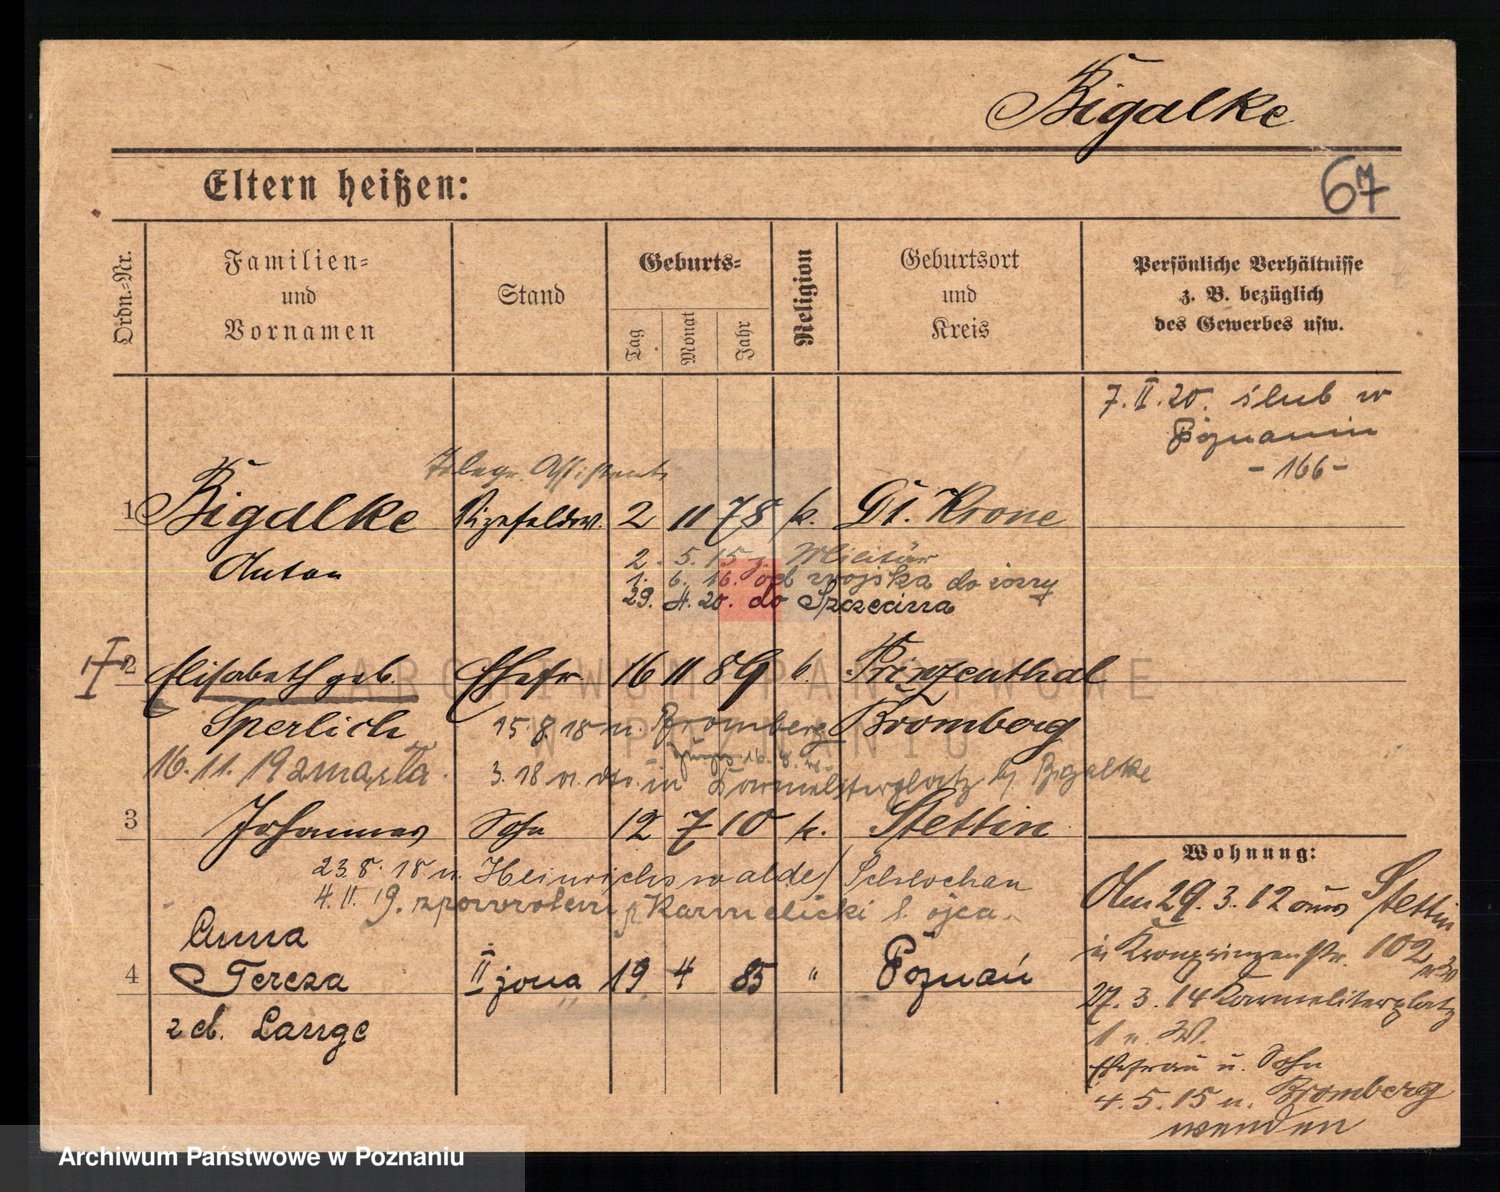 Bigalke
Eltern heißen:
67
Ordn.-Nr.
Familien-
und
Vornamen
Stand
Geburts-
Tag
Monat
Jahr
Religion
Geburtsort
und
Kreis
Persönliche Verhältnisse
z. B. bezüglich
des Gewerbes usw.
7. II. 20. ślub w
Poznaniu
- 166 -
Telegr. Assistent
1 Bigalke Vizefeldw. 2 11 78 k. Dt. Krone
Anton
2. 5. 15 z. Militär
1. 6. 16. od wojska do żony
29. 4. 20. do Szczecina
I 2 Elisabeth geb. Ehefr 16 11 89 k. Prinzenthal
Sperlich 15 8 18 n. Bromberg Bromberg
16. 11. 19 zmarła
3. 18 v. in Karmeliterplatz b/ Bigalke
3 Johannes Sohn 12 7 10 k. Stettin
23. 8. 18 n. Heinrichswalde/ Schlochau
4. II. 19. zpowrotem Karmelicki 1. ojca.
Anna
4 Tereza II żona 19 4 85 " Poznań
z d. Lange
Wohnung:
Am 29. 3. 12 aus Stettin
Kronprinzenstr. 102
27. 3. 14 Karmeliterplatz
1 n. W.
Ehefrau u. Sohn
4. 5. 15 n. Bromberg
wenden
ARCHIWUM PAŃSTWOWE
W POZNANIU
Archiwum Państwowe w Poznaniu